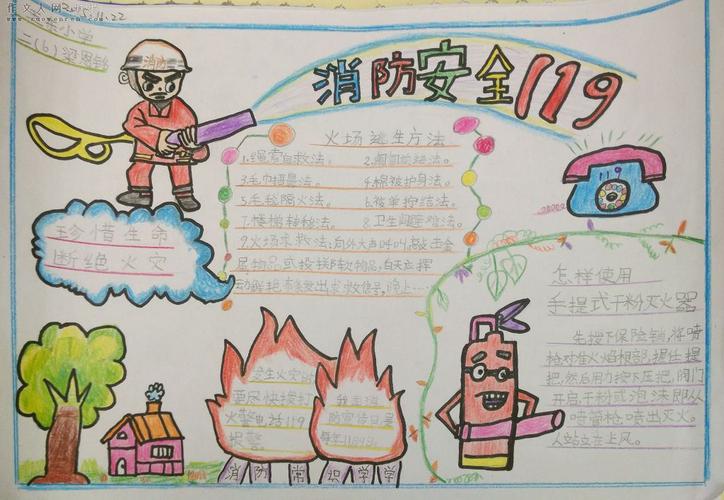 作文人网
www.cuowenren.com
2015.11.22
小学
二(6)梁恩
消防
消防安全119
火场逃生方法
1.绳索自救法。
2.匍匐前进法。
3.毛巾捂鼻法。
4.棉被护身法。
5.毛毯隔火法。
6.被单拧结法。
7.楼梯转移法。
8.卫生间避难法。
9.火场求救法:向外大声呼叫,敲击金
属物品或投掷软物品,白天应挥
动鲜艳布条发出求救信号,晚上……
119
珍惜生命
断绝火灾
发生火灾时
要尽快拨打
火警电话119
报警
我国消
防宣传日是
每年11月9日
消防常识学学
怎样使用
手提式干粉灭火器
先拔下保险销,将喷
枪对准火焰根部,握住提
把,然后用力按下压把,阀门
开启,干粉或泡沫即从
喷管枪喷出灭火。
人站立在上风。